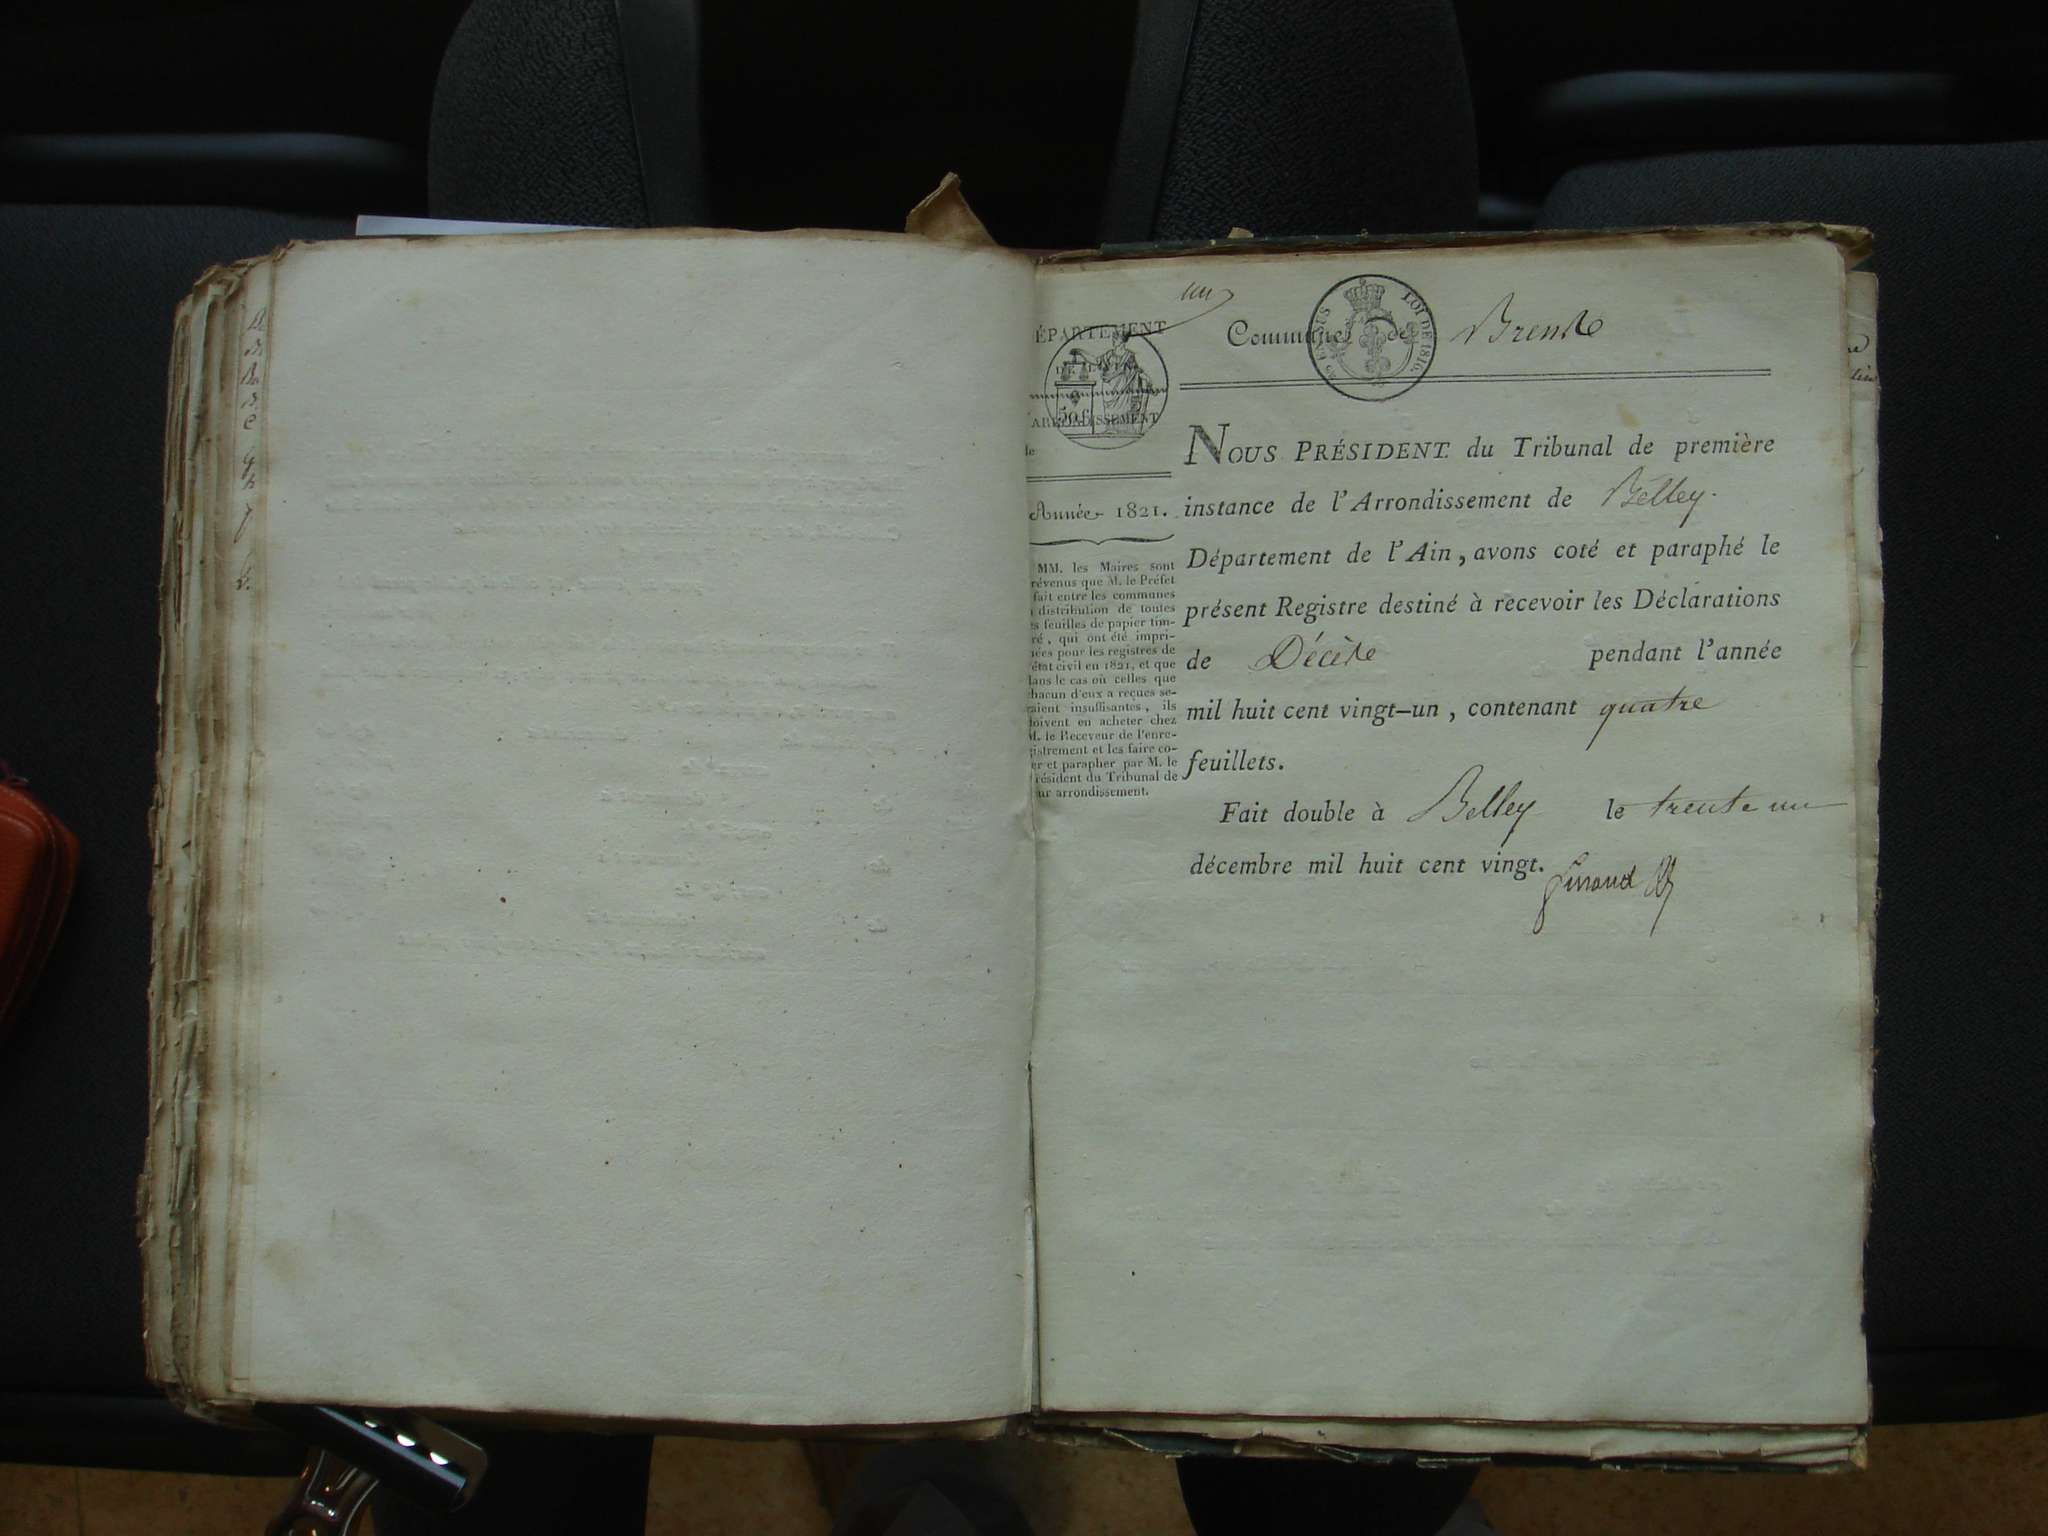 un
DÉPARTEMENT
DE L'AIN.
ARRONDISSEMENT
de
50 C
Année 1821.
MM. les Maires sont
révenus que M. le Préfet
fait entre les communes
a distribution de toutes
es feuilles de papier tim-
ré, qui ont été impri-
mées pour les registres de
'état civil en 1821, et que
dans le cas où celles que
chacun d'eux a reçues se-
raient insuffisantes, ils
doivent en acheter chez
M. le Receveur de l'enre-
gistrement et les faire co-
er et parapher par M. le
résident du Tribunal de
eur arrondissement.
Commune de
LOI DE 1816.
NOUS PRÉSIDENT du Tribunal de première
instance de l'Arrondissement de Belley.
Département de l'Ain, avons coté et paraphé le
présent Registre destiné à recevoir les Déclarations
de Décès pendant l'année
mil huit cent vingt-un, contenant quatre
feuillets.
Fait double à Belley le trente un
décembre mil huit cent vingt.